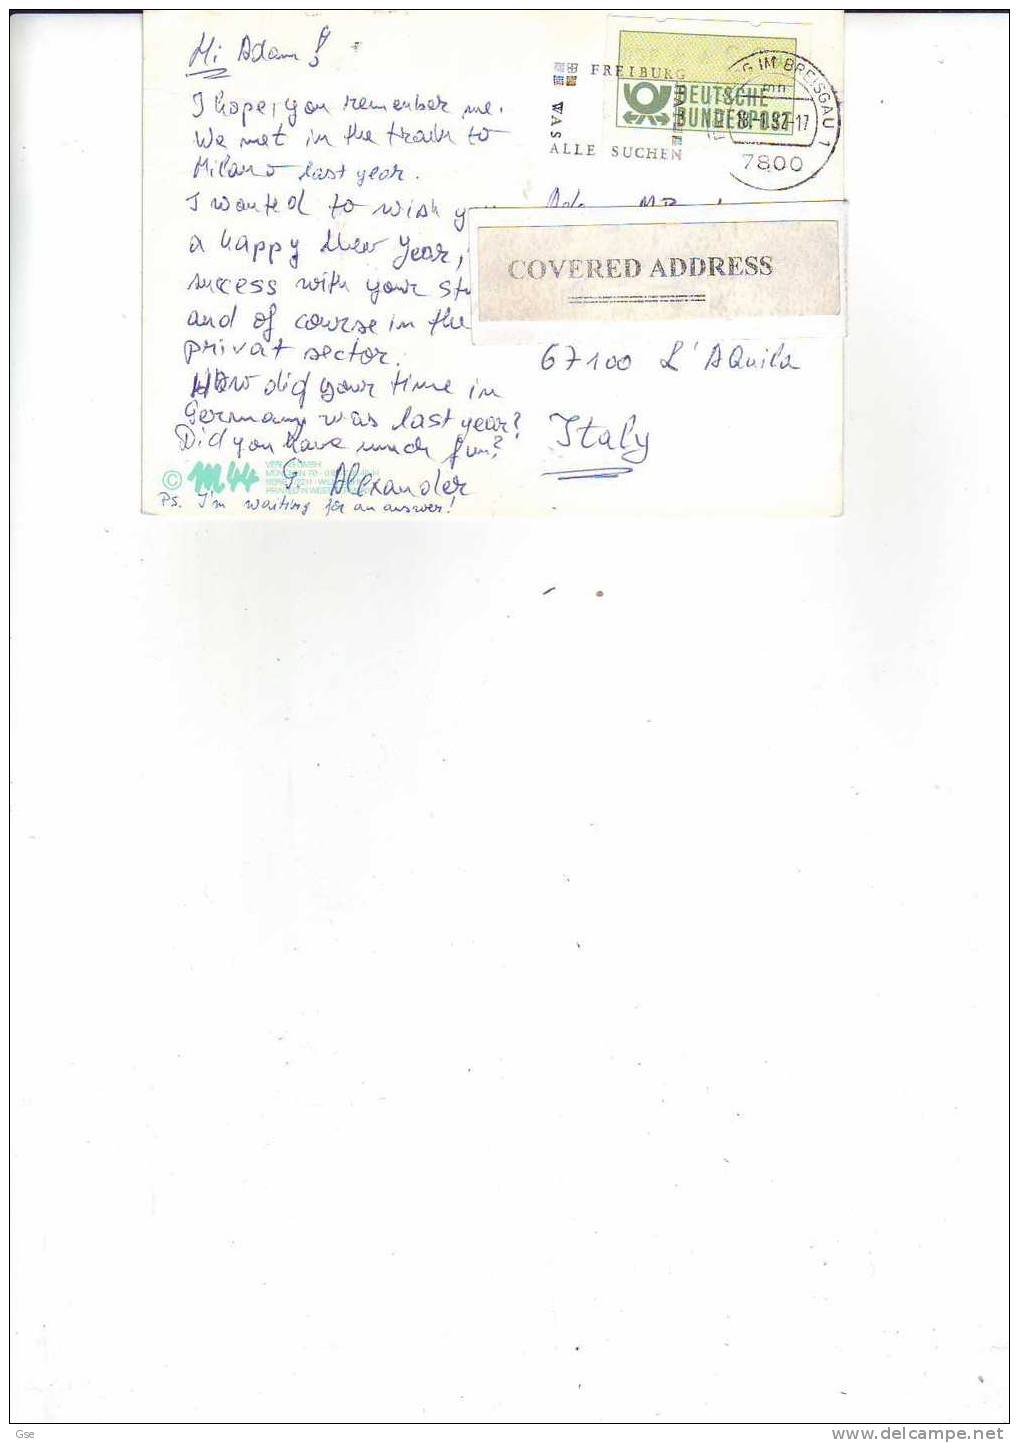 Hi Adam!
I hope, you remember me.
We met in the train to
Milano last year.
I wanted to wish
a happy New Year,
success with your
and of course in the
privat sector.
How did your time in
Germany was last year?
Did you have much fun?
G. Alexander
Ps. I'm waiting for an answer!
© M44
FREIBURG
WAS
ALLE SUCHEN
DEUTSCHE
BUNDESPOST
G IM BREISGAU 1
mn
-17
7800
COVERED ADDRESS
67100 L'AQuila
Italy
Gse
www.delcampe.net